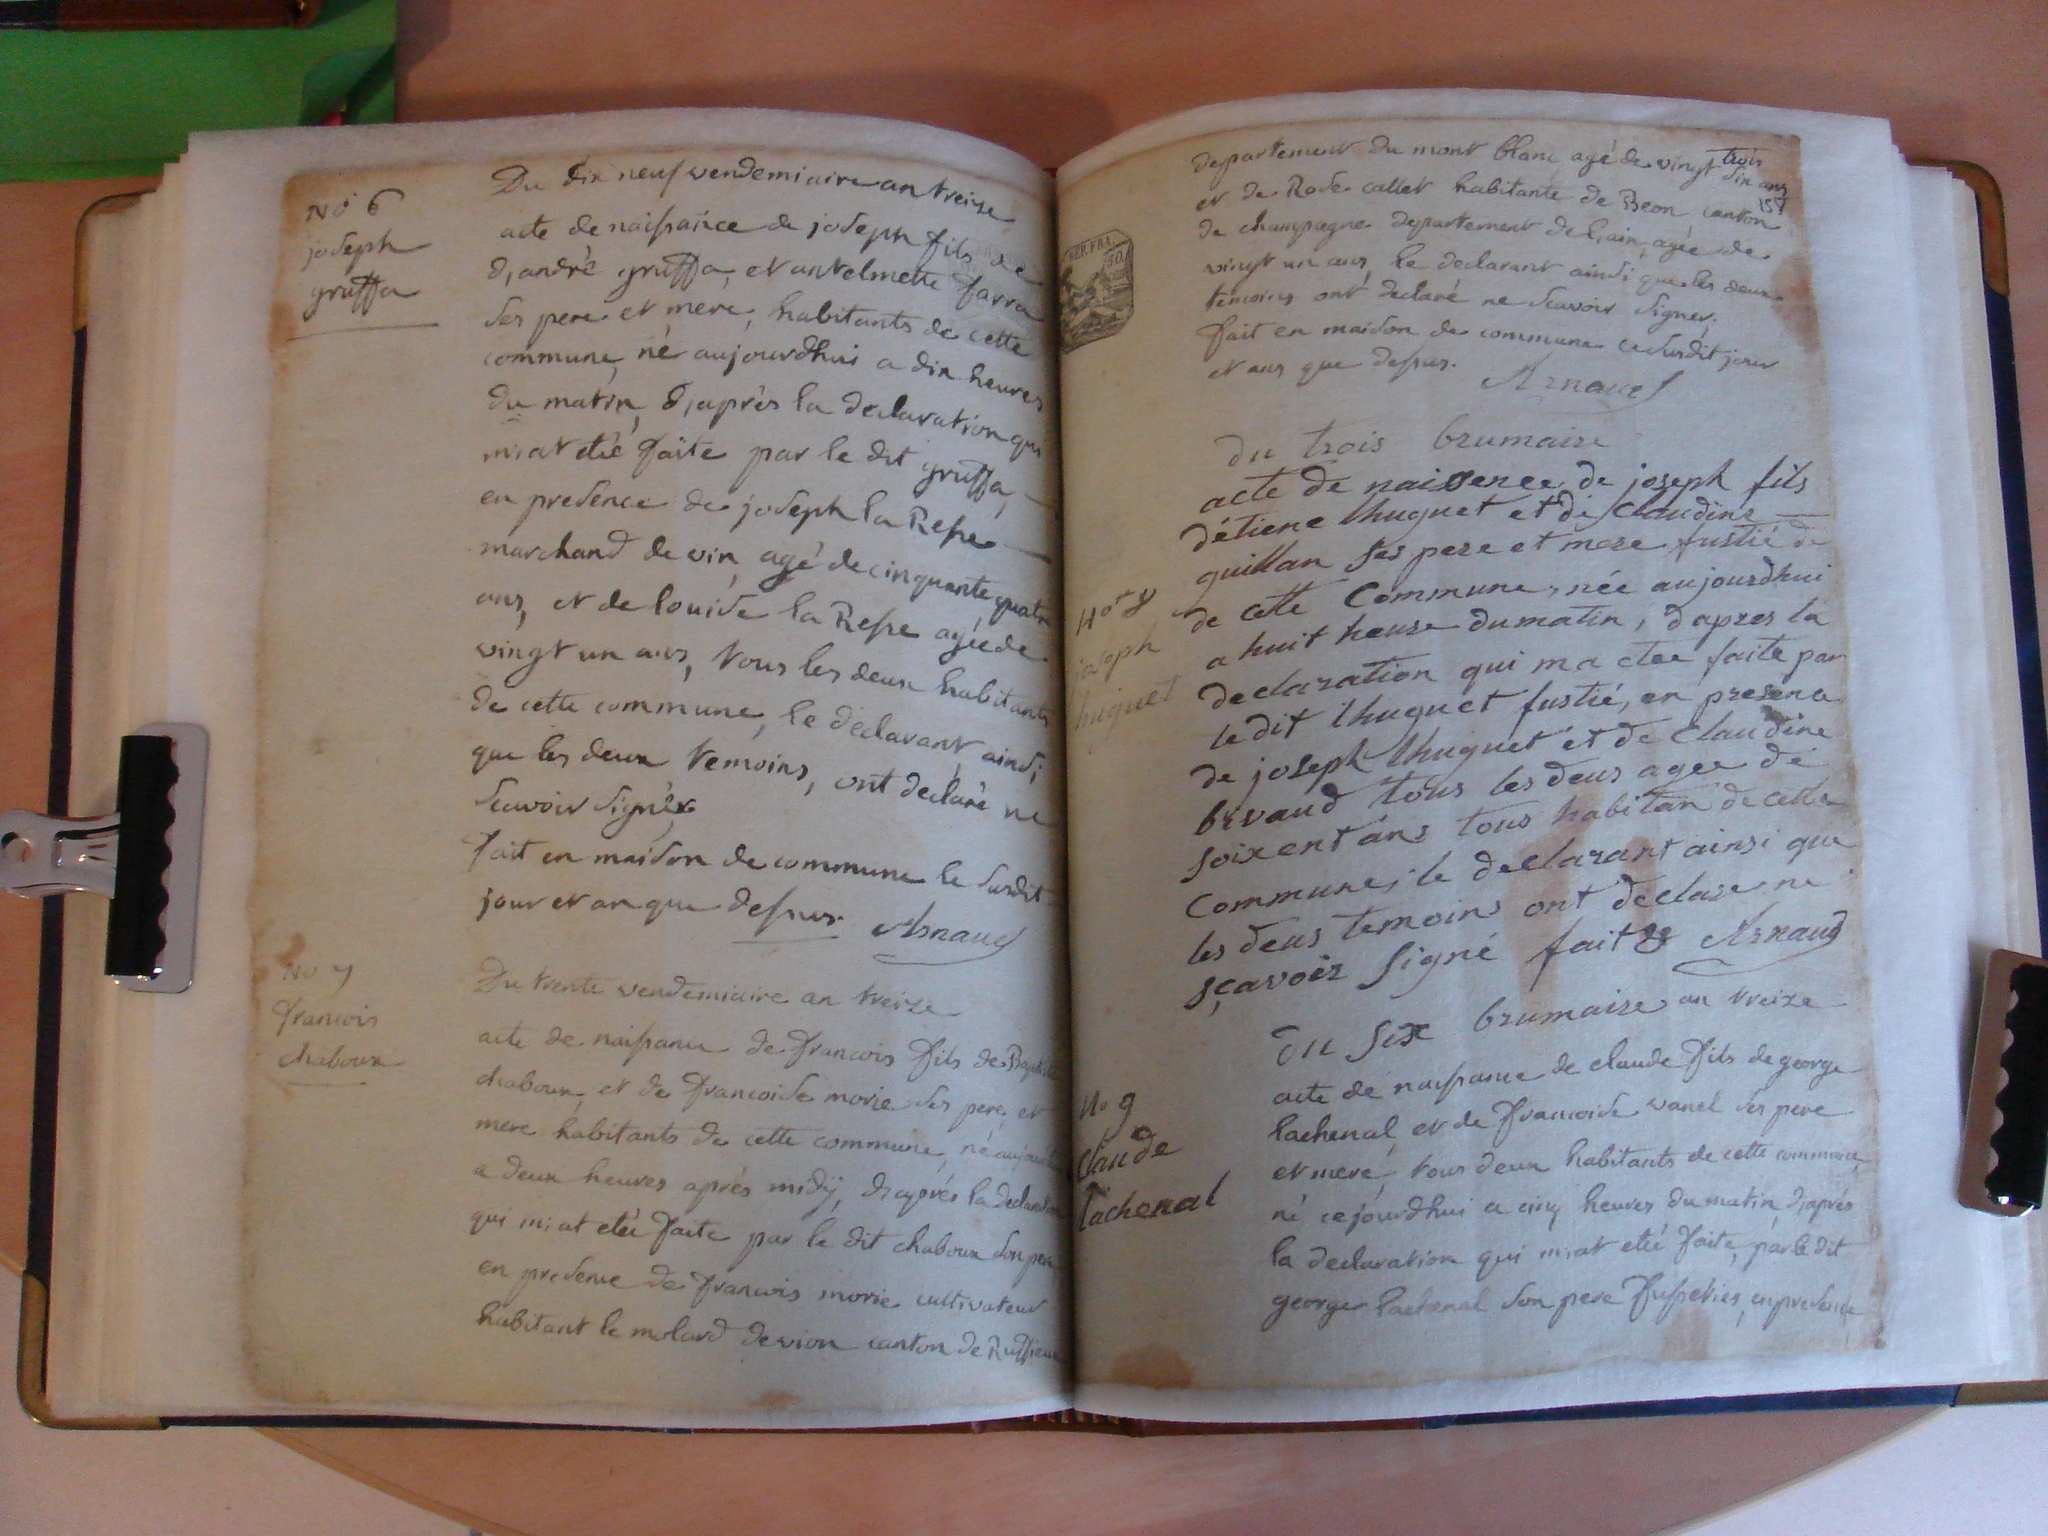 No 6
joseph
gruffa
Du dix neuf vendemiaire an treize
acte de naissance de joseph fils de
d,andré gruffa, et antelmette farra
ses pere et mere, habitants de cette
commune, né aujourdhui a dix heures
du matin, d,après la declaration qui
m,at etée faite par le dit gruffa,
en presence de joseph la Resse
marchand de vin agé de cinquante quatre
ans, et de louise la Resse agée de
vingt un ans, tous les deux habitants
de cette commune, le declarant, ainsi
que les deux temoins, ont declaré ne
scavoir signér
fait en maison de commune le susdit
jour et an que dessus. Arnaud
No 7
francois
chaboux
Du trente vendemiaire an treize
acte de naissance de francois fils de
chaboux, et de francoise morie ses pere et
mere habitants de cette commune, né
a deux heures après midÿ, d,après la
qui m,at etée faite par le dit chaboux son pere
en presence de francois morie cultivateur
habitant le molard de vion canton de Ruffieux
departement du mont blanc agé de vingt trois
dix ans
et de Rose callet habitante de Beon canton
157
de champagne departement de l,ain, agée de
vingt un ans, le declarant ainsi que les deux
temoins ont declaré ne scavoir signer,
fait en maison de commune le susdit jour
et ans que dessus. Arnaud
REP. FRA.
du trois brumaire
No 8
joseph
huguet
acte de naissence de joseph fils
d'étiene thuguet et de Claudine
guillan ses pere et mere fustié de
de cette Commune, née aujourdhui
a huit heure du matin, d'apres la
declaration qui ma etee faite par
le dit thuguet fustié, en presence
de joseph thuguet et de Claudine
brvaud tous les deus agee de
soixent ans tous habitan de cette
Commune, le declarant ainsi que
les deus temoins ont declare ne
sçavoir signé fait Arnaud
du six brumaire an treize
No 9
Claude
Lachenal
acte de naissance de claude fils de george
lachenal, et de francoise vanel ses pere
et mere, tous deux habitants de cette commune,
né cejourdhui a cinq heures du matin d,après
la declaration qui m,at etée faite, par le dit
george lachenal son pere fusteries, en presence